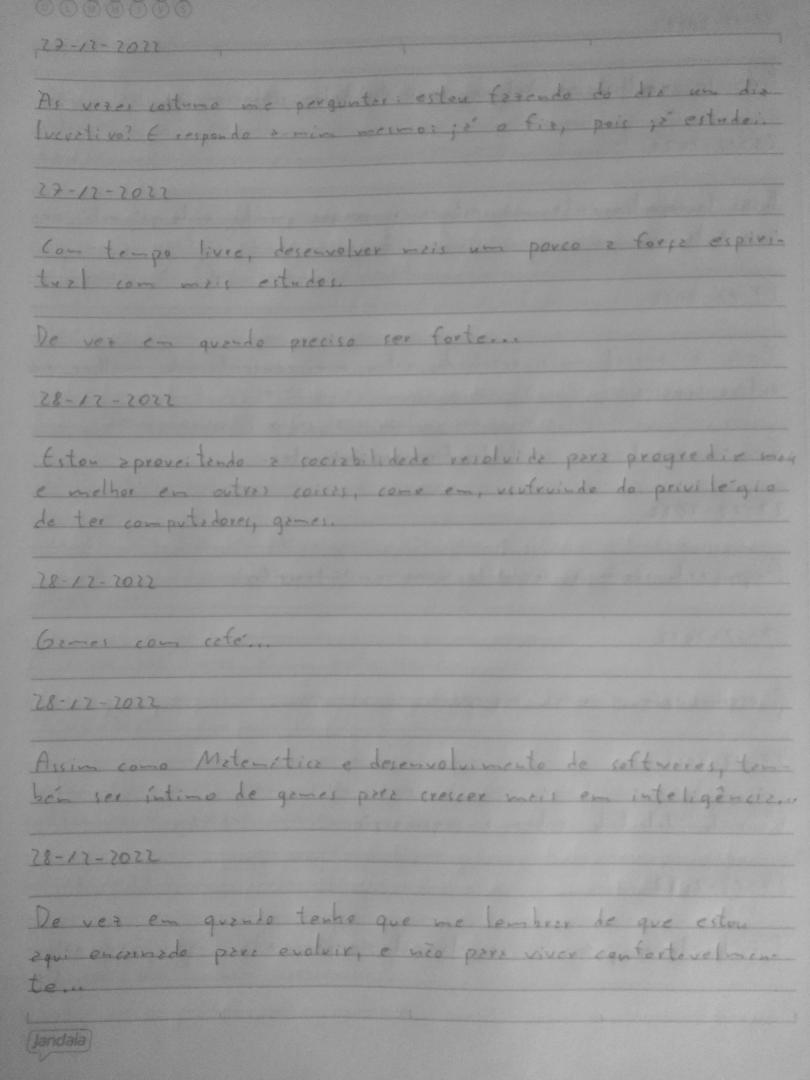 D S T Q Q S S
27-12-2022
As vezes costumo me perguntar: estou fazendo do dia um dia
lucrativo? E respondo a mim mesmo: já o fiz, pois já estudei.
27-12-2022
Com tempo livre, desenvolver mais um pouco a força espiri-
tual com mais estudos.
De vez em quando preciso ser forte...
28-12-2022
Estou aproveitando a sociabilidade resolvida para progredir mais
e melhor em outras coisas, como em, usufruindo do privilégio
de ter computadores, games.
28-12-2022
Games com café...
28-12-2022
Assim como Matemática e desenvolvimento de softwares, tam-
bém ser íntimo de games para crescer mais em inteligência...
28-12-2022
De vez em quando tenho que me lembrar de que estou
aqui encarnado para evoluir, e não para viver confortavelmen-
te...
jandaia